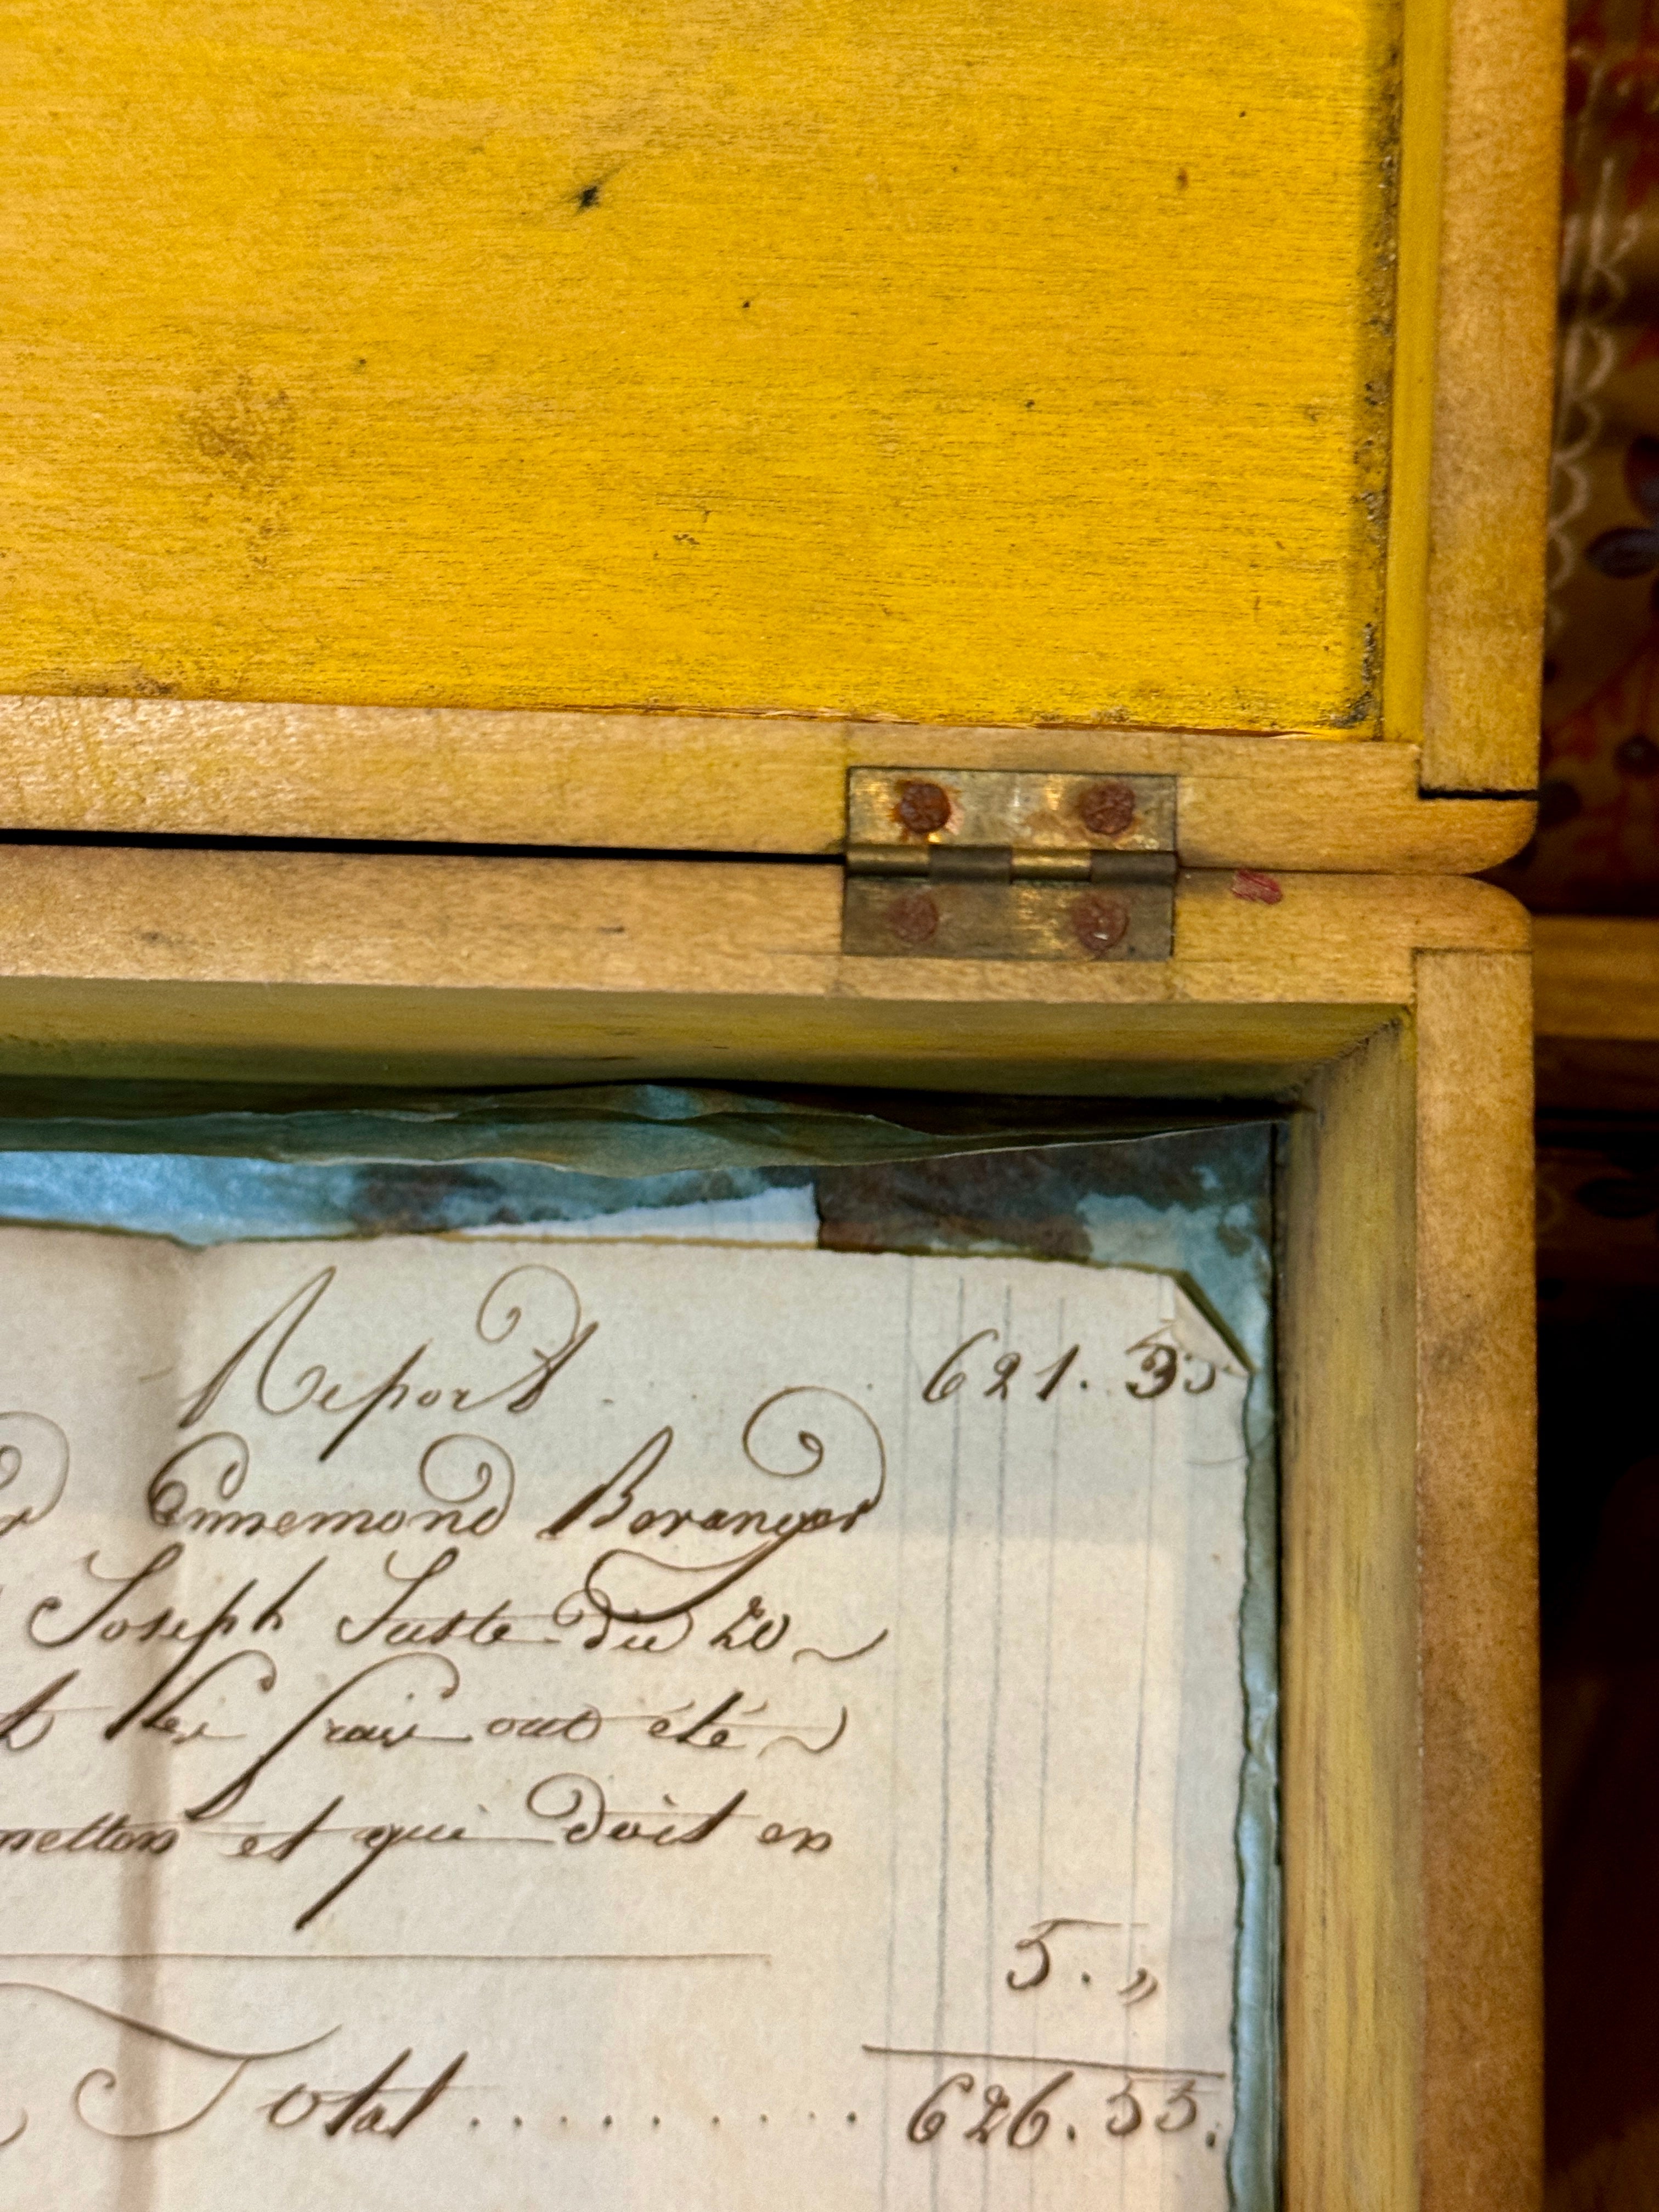 Report. 621. 35
Ennemond Beranger
Joseph Juste du 20
les frais ont été
et qui doit en
5. „
Total .......... 626. 35.